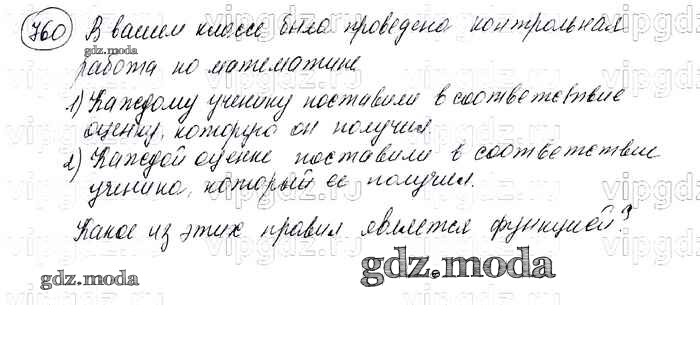 760 В вашем классе была проведена контрольная
gdz.moda
работа по математике
1) Каждому ученику поставили в соответствие
оценку, которую он получил.
2) Каждой оценке поставили в соответствие
ученика, который ее получил.
Какое из этих правил является функцией?
gdz.moda
gdz.moda